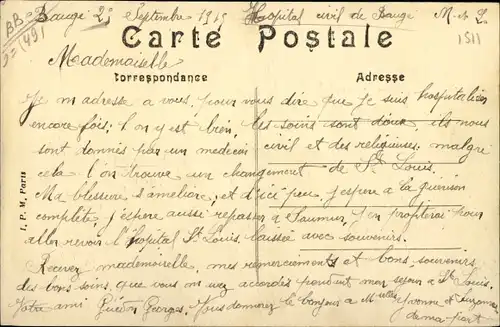 Baugé 29 Septembre 1915 Hôpital civil de Baugé M-et-L.
BB=
1511
Carte Postale
Mademoiselle
Correspondance Adresse
Je m adresse a vous, pour vous dire que je suis hospitalisé
encore fois; l'on y est bien, les soins sont doux, ils nous
sont donnés par un medecin civil et des religieuses, malgre
cela l'on trouve un changement de St Louis.
Ma blessure s'améliore, et d'ici peu, j'espere a la guerison
complète, j'espere aussi repasser a Saumur, j'en profiterai pour
aller revoir l'hôpital St Louis, laissée avec souvenirs.
Recevez mademoiselle, mes remerciements et bons souvenirs
des bons soins, que vous m avez accordés pendant mon sejour a St Louis.
Votre ami Guédon Georges. Vous donnerez le bonjour a Mselles Yvonne et Suzanne
de ma part
I. P. M. Paris